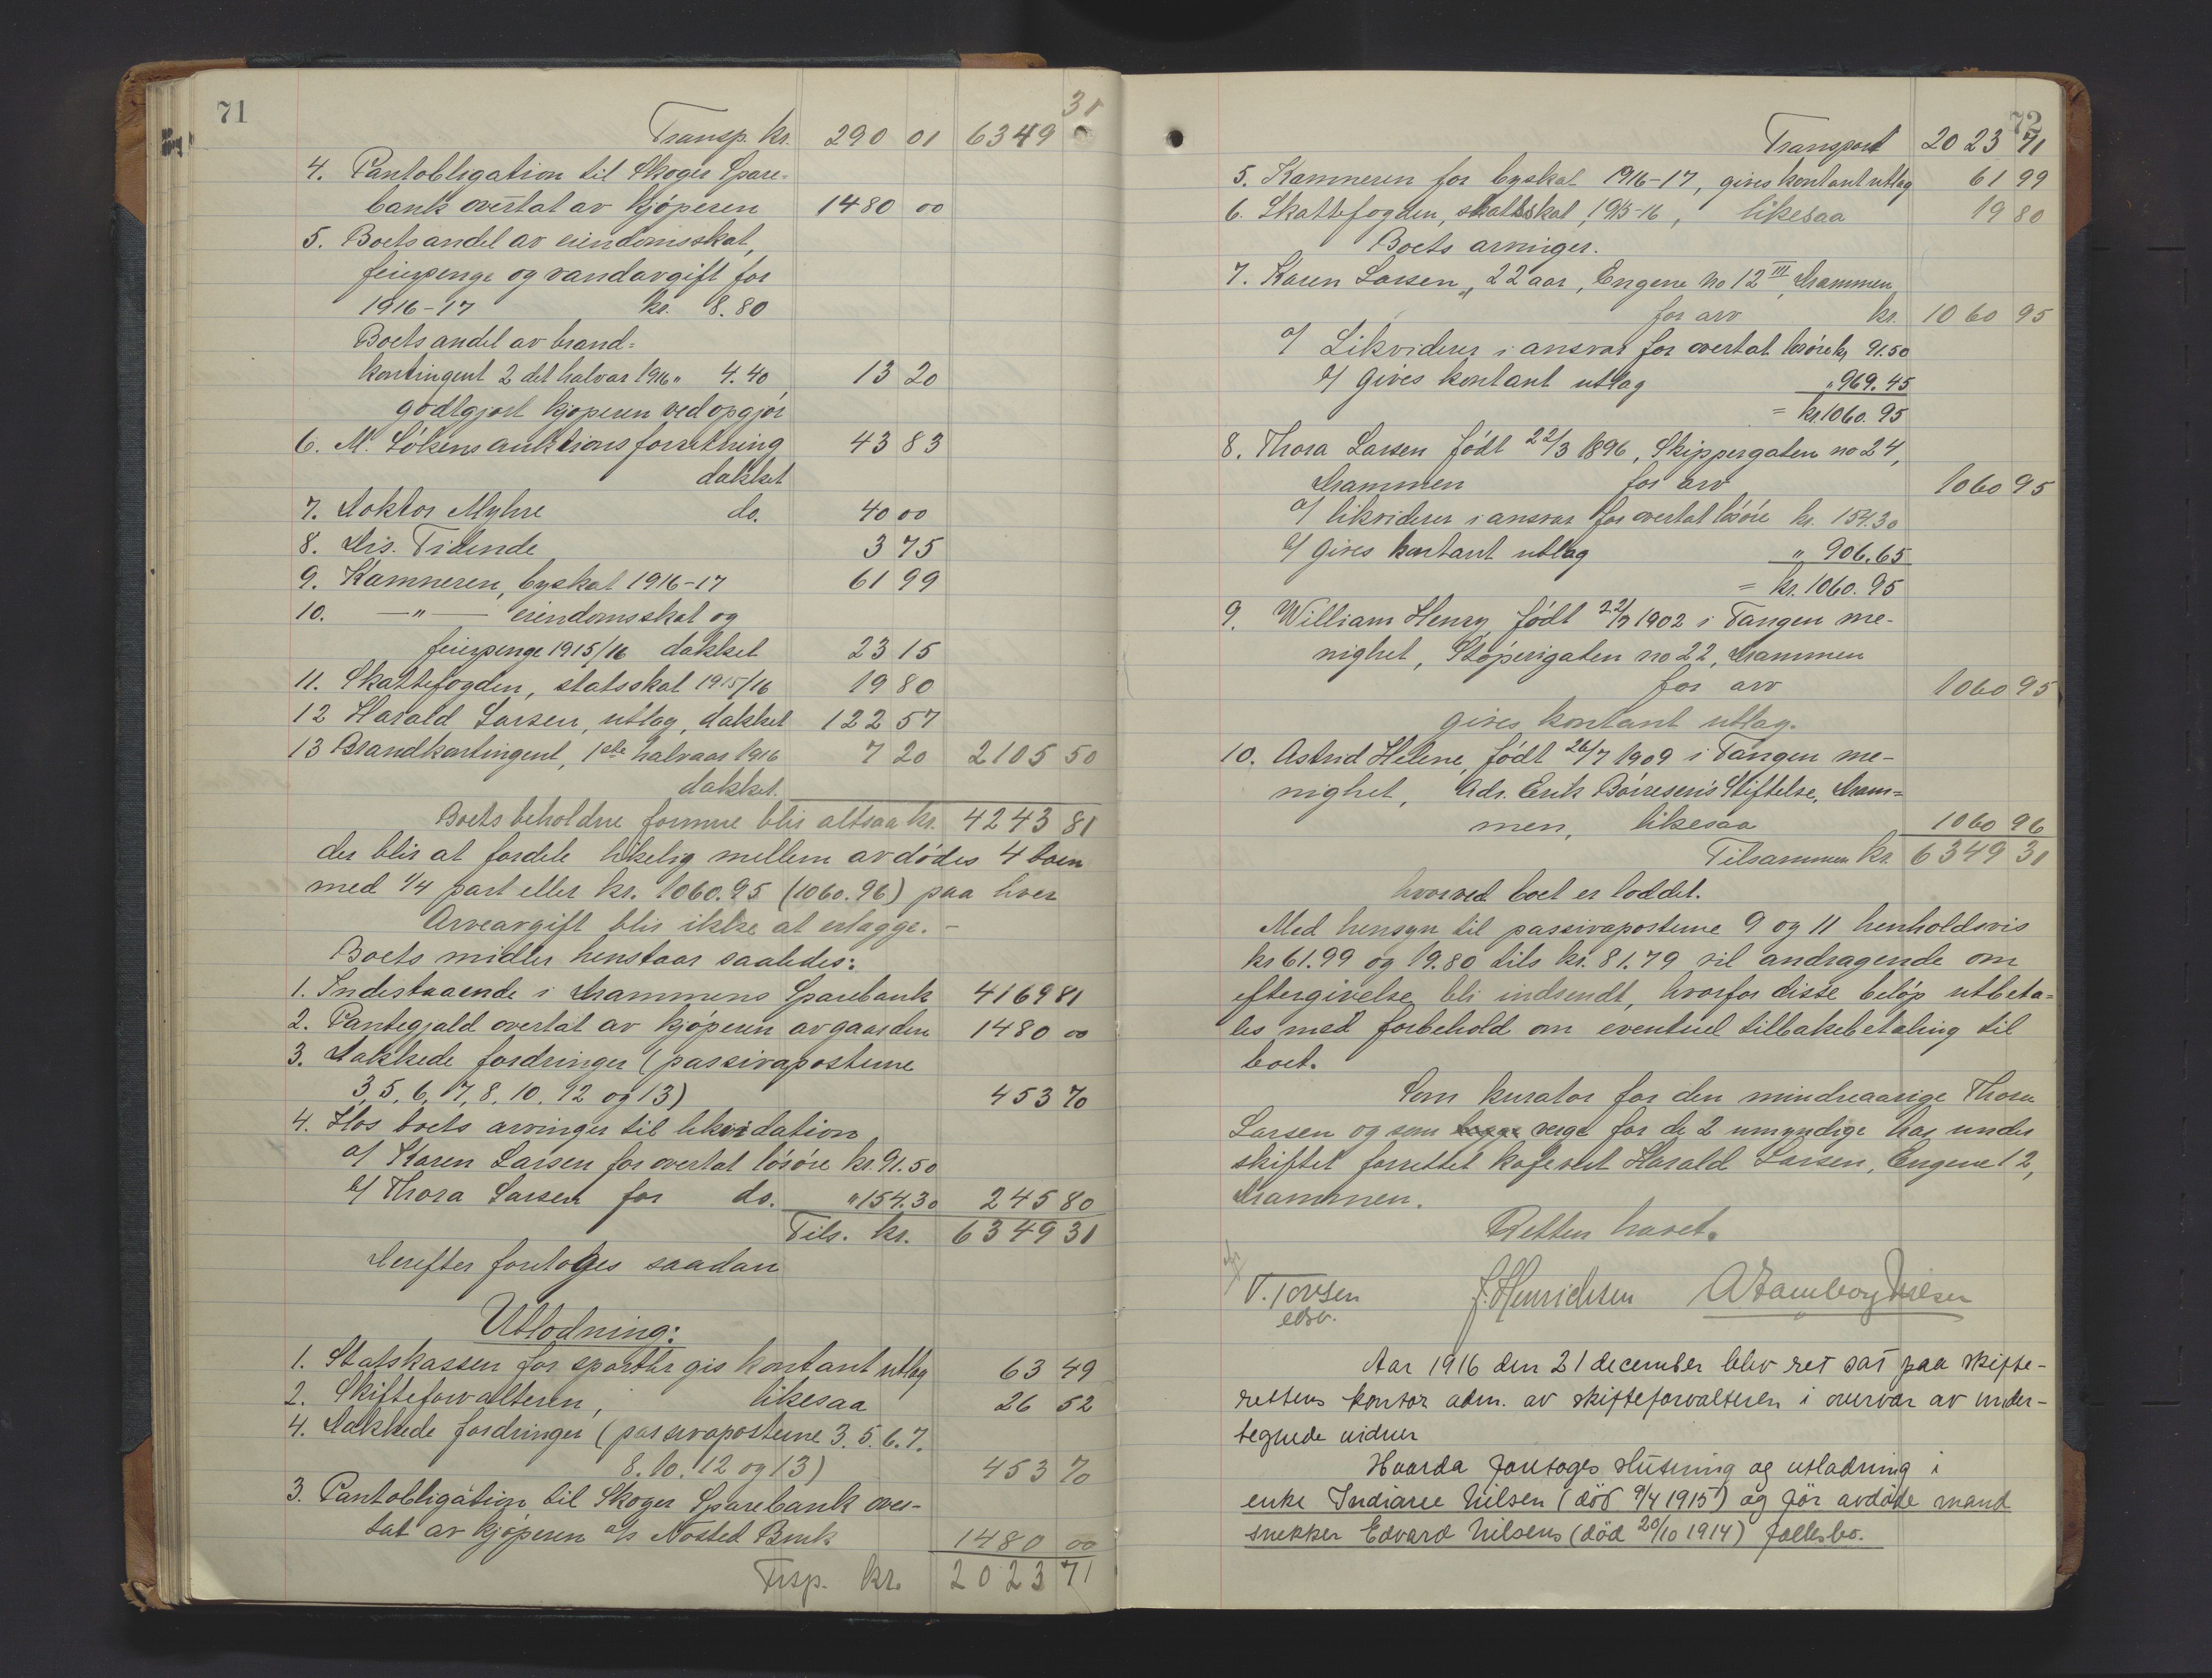 71
31
Transp. kr. 290 01 6349
4. Pantobligation til Skoger Spare=
bank overtat av kjøperen 1480 00
5. Boets andel av eiendomsskat,
feierpenge og vandavgift for
1916-17 kr. 8.80
Boets andel av brand=
kontingent 2 det halvar 1916 " 4.40 13 20
godtgjort kjøperen ved opgjør
6. M. Løkens auktionsforretning 43 83
dækket
7. Doktor Myhre do. 40 00
8. Drs. Tidende 3 75
9. Kæmneren, byskat 1916-17 61 99
10. —"— eiendomsskat og
feierpenge 1915/16 dækket 23 15
11. Skattefogden, statsskat 1915/16 19 80
12 Harald Larsen, utlæg, dækket 122 57
13 Brandkontingent, 1ste halvaar 1916 7 20 2105 50
dækket.
Boets beholdne formue blir altsaa kr. 4243 81
der blir at fordele likelig mellem avdødes 4 børn
med 1/4 part eller kr. 1060.95 (1060.96) paa hver
Arveavgift blir ikke at erlægge. -
Boets midler henstaar saaledes:
1. Indestaaende i Drammens Sparebank 4169 81
2. Pantegjæld overtat av kjøperen av gaarden 1480 00
3. Dækkede fordringer (passivaposterne
3, 5, 6, 7, 8, 10, 12 og 13) 453 70
4. Hos boets arvinger til likvidation
a/ Karen Larsen for overtat løsøre kr. 91.50
b/ Thora Larsen for do. " 154.30 245 80
Tils. kr. 6349 31
Derefter foretoges saadan
Utlodning:
1. Statskassen for sportler gis kontant utlæg 63 49
2. Skifteforvalteren, likesaa 26 52
4. Dækkede fordringer (passivaposterne 3. 5. 6. 7.
8. 10. 12 og 13) 453 70
3. Pantobligation til Skoger Sparebank over-
tat av kjøperen a/s Nøsted Bruk 1480 00
Trsp. kr. 2023 71
72
Transport 2023 71
5. Kæmneren for byskat 1916-17, gives kontant utlæg 61 99
6. Skattefogden, statsskat, 1915-16, likesaa 19 80
Boets arvinger.
7. Karen Larsen, 22 aar, Engene No 12 III, Drammen
for arv kr. 1060 95
a/ Likviderer i ansvar for overtat løsøre kr. 91.50
b/ gives kontant utlæg " 969.45
= kr. 1060.95
8. Thora Larsen født 22/3 1896, Skippergaten no 24,
Drammen for arv 1060 95
a/ likviderer i ansvar for overtat løsøre kr. 154.30
b/ gives kontant utlæg " 906.65
= kr. 1060.95
9. William Henry født 22/9 1902 i Tangen me-
nighet, Støperigaten no 22, Drammen
for arv 1060 95
gives kontant utlæg.
10. Astrid Helene, født 26/7 1909 i Tangen me-
nighet, Adr. Erik Børresens Stiftelse, Dram=
men, likesaa 1060 96
Tilsammen kr. 6349 31
hvorved boet er loddet.
Med hensyn til passivaposterne 9 og 11 henholdsvis
kr 61.99 og 19.80 tils kr. 81.79 vil andragende om
eftergivelse bli indsendt, hvorfor disse beløp utbeta=
les med forbehold om eventuel tilbakebetaling til
boet.
Som kurator for den mindreaarige Thora
Larsen og som verge for de 2 umyndige har under
skiftet forrettet kafevert Harald Larsen, Engene 12,
Drammen.
Retten hævet.
T. Torsen J. Henrichsen
edsv.
Aar 1916 den 21 december blev ret sat paa skifte-
rettens kontor adm. av skifteforvalteren i overvær av under-
tegnede vidner
Hvorda foretoges slutning og utlodning i
enke Indiane Nilsen (død 9/4 1915) og før avdøde mand
snekker Edvard Nilsens (død 20/10 1914) fællesbo.